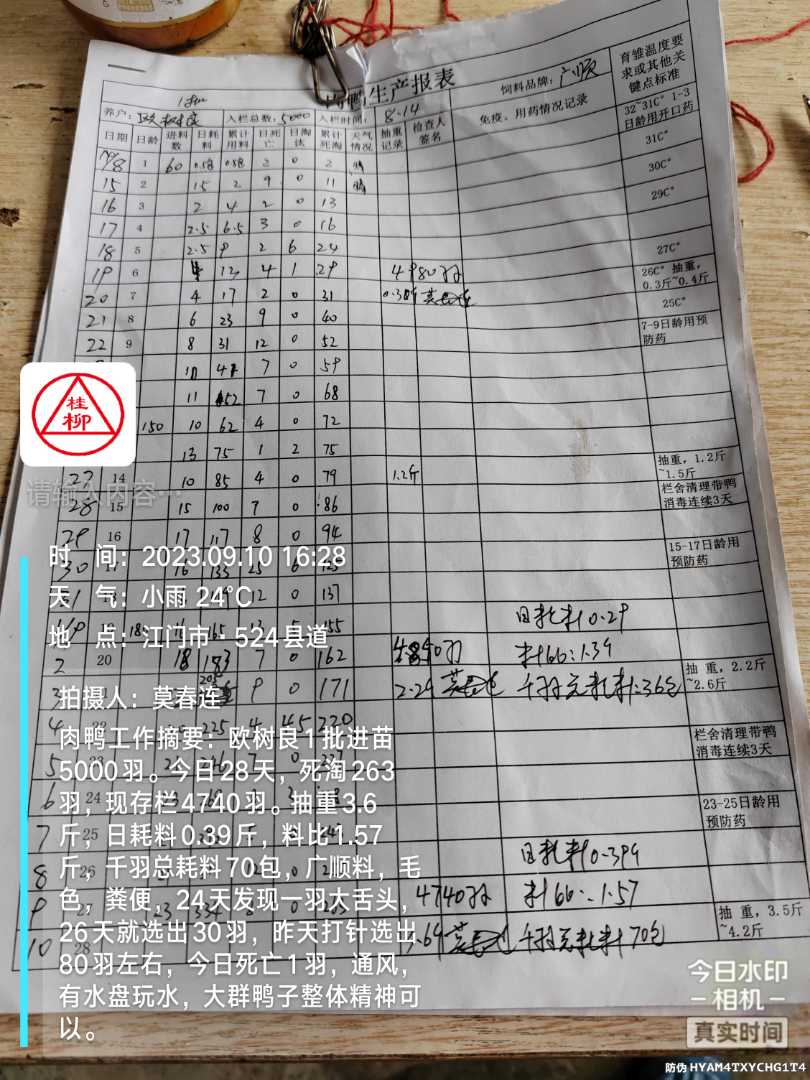 肉鸭生产报表
饲料品牌：广顺
养户：欧树良 入栏总数：5000 入栏时间：8-14
免疫、用药情况记录
育雏温度要求或其他关键点标准
日期 日龄 进料数 日耗料 累计用料 日死亡 日淘汰 累计死淘 天气情况 抽重记录 检查人签名
32~31C° 1-3日龄用开口药
1 60 0.58 0.58 2 0 2 晴
31C°
15 2 15 2 9 0 11 晴
30C°
16 3 2 4 2 0 13
29C°
17 4 2.5 6.5 3 0 16
18 5 2.5 9 2 6 24
27C°
19 6 4 12 4 1 29 4980羽
26C° 抽重，0.3斤~0.4斤
20 7 4 17 2 0 31 0.38斤 莫春连
25C°
21 8 6 23 9 0 40
7-9日龄用预防药
22 9 8 31 12 0 52
7 0 59
11 52 7 0 68
150 10 62 4 0 72
13 75 1 2 75
抽重，1.2斤~1.5斤
27 14 10 85 4 0 79 1.2斤
栏舍清理带鸭消毒连续3天
28 15 15 100 7 0 86
29 16 17 117 8 0 94
15-17日龄用预防药
30
12 0 137
日耗料0.29
155
2 20 18 183 7 0 162 4840羽 料比：1.39
3 9 0 171 莫春连 千羽总耗料：36包
抽重，2.2斤~2.6斤
4 225 4 45 220
栏舍清理带鸭消毒连续3天
5
6 24
23-25日龄用预防药
7 25
8 26
日耗料0.399
9 27 4740羽 料比：1.57
抽重，3.5斤~4.2斤
10 28 莫春连 千羽总耗料70包
桂柳
请输入内容…
时 间：2023.09.10 16:28
天 气：小雨 24℃
地 点：江门市·524县道
拍摄人：莫春连
肉鸭工作摘要：欧树良1批进苗
5000羽。今日28天，死淘263
羽，现存栏4740羽。抽重3.6
斤，日耗料0.39斤，料比1.57
斤，千羽总耗料70包，广顺料，毛
色，粪便，24天发现一羽大舌头，
26天就选出30羽，昨天打针选出
80羽左右，今日死亡1羽，通风，
有水盘玩水，大群鸭子整体精神可
以。
今日水印
相机
真实时间
防伪 HYAM4TXYCHG1T4